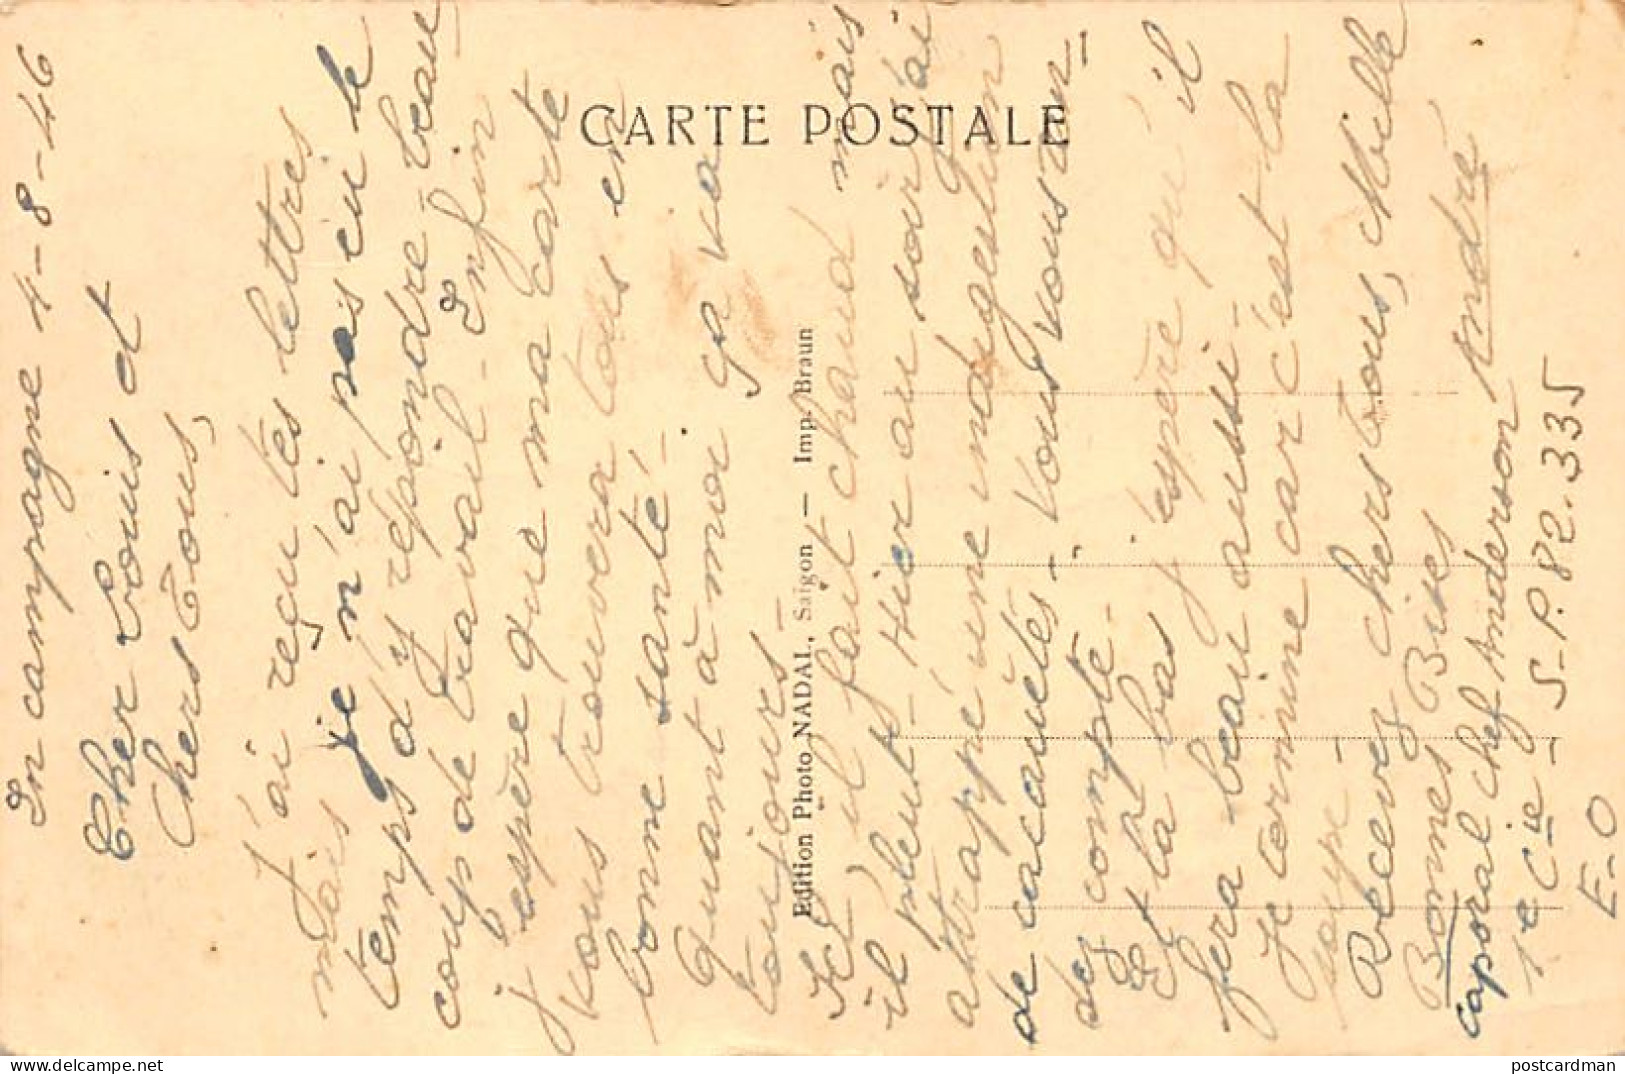 En campagne 4-8-46
Cher Louis et
Chers Tous,
J'ai reçu tes lettres
mais je n'ai pas eu le
temps d'y répondre - beau
coup de travail - Enfin
j'espère que ma carte
vous trouvera tous en
bonne santé -
Quant à moi ça va
toujours -
Ici, il fait chaud mais
il pleut - Hier au soir j'ai
attrappé une indigestion
de cacauétés - Vous vous ren-
dez compte -
Et là bas j'espère qu'il
fera beau aussi -
Je termine car c'est la
soupe -
Recevez chers tous, Mille
Bonnes Bises
André
caporal chef Anderson
1e Cie - S.P. 82.335
E-O
CARTE POSTALE
Edition Photo NADAL, Saigon — Imp. Braun
postcardman